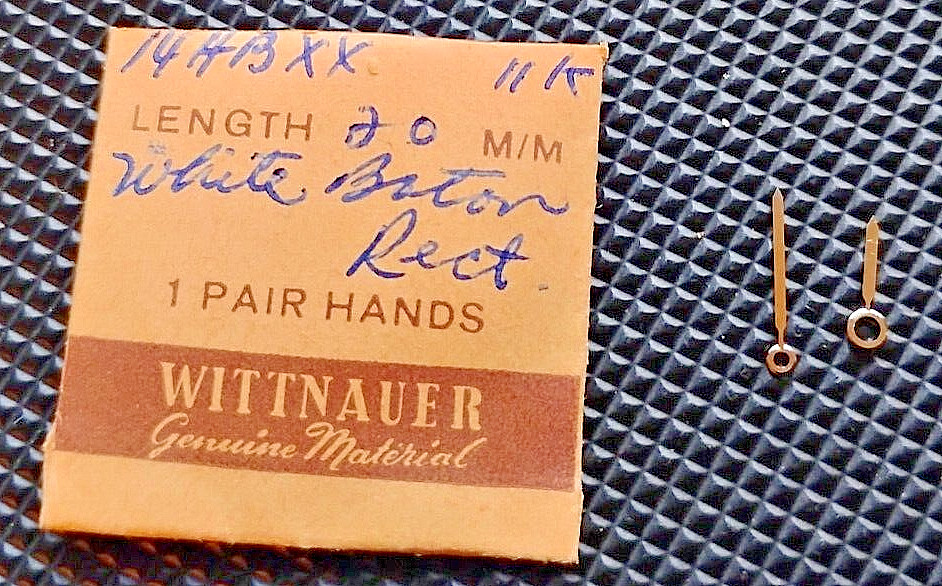 14HBXX 11K
LENGTH 20 M/M
White Baton
Rect.
1 PAIR HANDS
WITTNAUER
Genuine Material